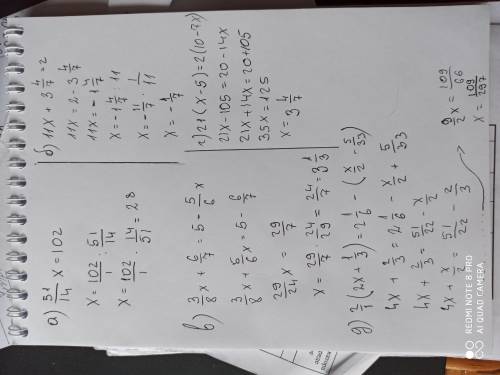 а) 51/14 x = 102
x = 102/1 : 51/14
x = 102/1 · 14/51 = 28
б) 11x + 3 4/7 = 2
11x = 2 - 3 4/7
11x = -1 4/7
x = -1 4/7 : 11
x = -11/7 · 1/11
x = -1/7
в) 3/8 x + 6/7 = 5 - 5/6 x
3/8 x + 5/6 x = 5 - 6/7
29/24 x = 29/7
x = 29/7 · 24/29 = 24/7 = 3 3/7
г) 21(x-5) = 2(10-7x)
21x - 105 = 20 - 14x
21x + 14x = 20 + 105
35x = 125
x = 3 4/7
g) 2/1 (2x + 1/3) = 2 1/6 - (x/2 - 5/33)
4x + 2/3 = 2 1/6 - x/2 + 5/33
4x + 2/3 = 51/22 - x/2
4x + x/2 = 51/22 - 2/3
9/2 x = 109/66
x = 109/297
REDMI NOTE 8
AI QUAD CAMERA